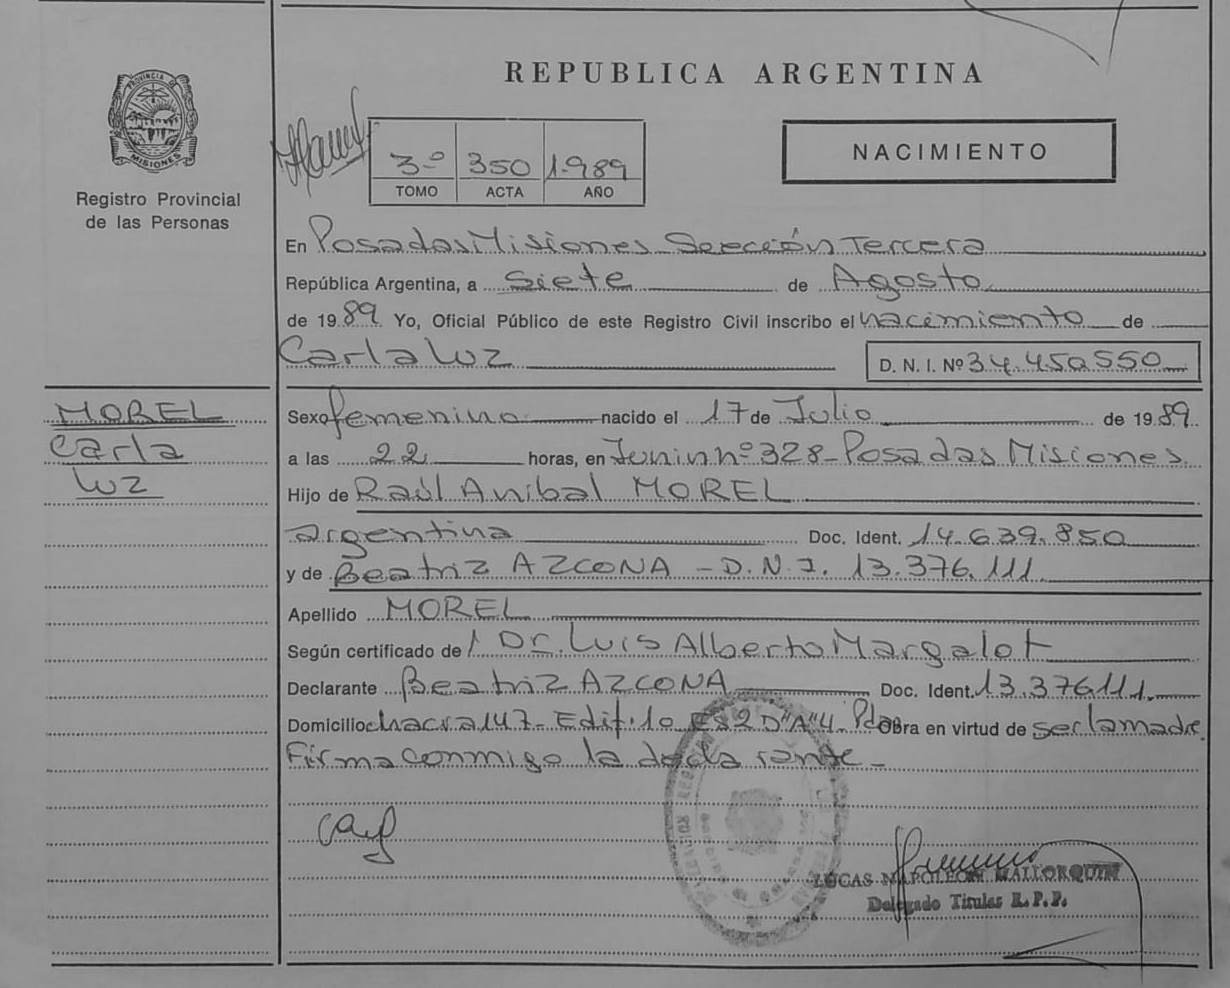 REPUBLICA ARGENTINA
PROVINCIA DE MISIONES
Registro Provincial
de las Personas
3º 350 1.989
TOMO ACTA AÑO
NACIMIENTO
En Posadas Misiones Sección Tercera
República Argentina, a siete de Agosto
de 1989 Yo, Oficial Público de este Registro Civil inscribo el nacimiento de
Carla Luz
D. N. I. Nº 34.450.550
MOREL
Carla
Luz
Sexo femenino nacido el 17 de Julio de 1989.
a las 22 horas, en Junin nº 328 - Posadas Misiones
Hijo de Raúl Anibal MOREL
argentina Doc. Ident. 14.639.850
y de Beatriz AZCONA - D.N.I. 13.376.111
Apellido MOREL
Según certificado de Dr. Luis Alberto Margalot
Declarante Beatriz AZCONA Doc. Ident. 13.376.111.
Domicilio chacra 147 - Edif. 10 ES2 D"A"4. Pdas Obra en virtud de ser la madre
Firma conmigo la declarante -
LUCAS NAPOLEON MALLORQUIN
Delegado Titular R.P.P.